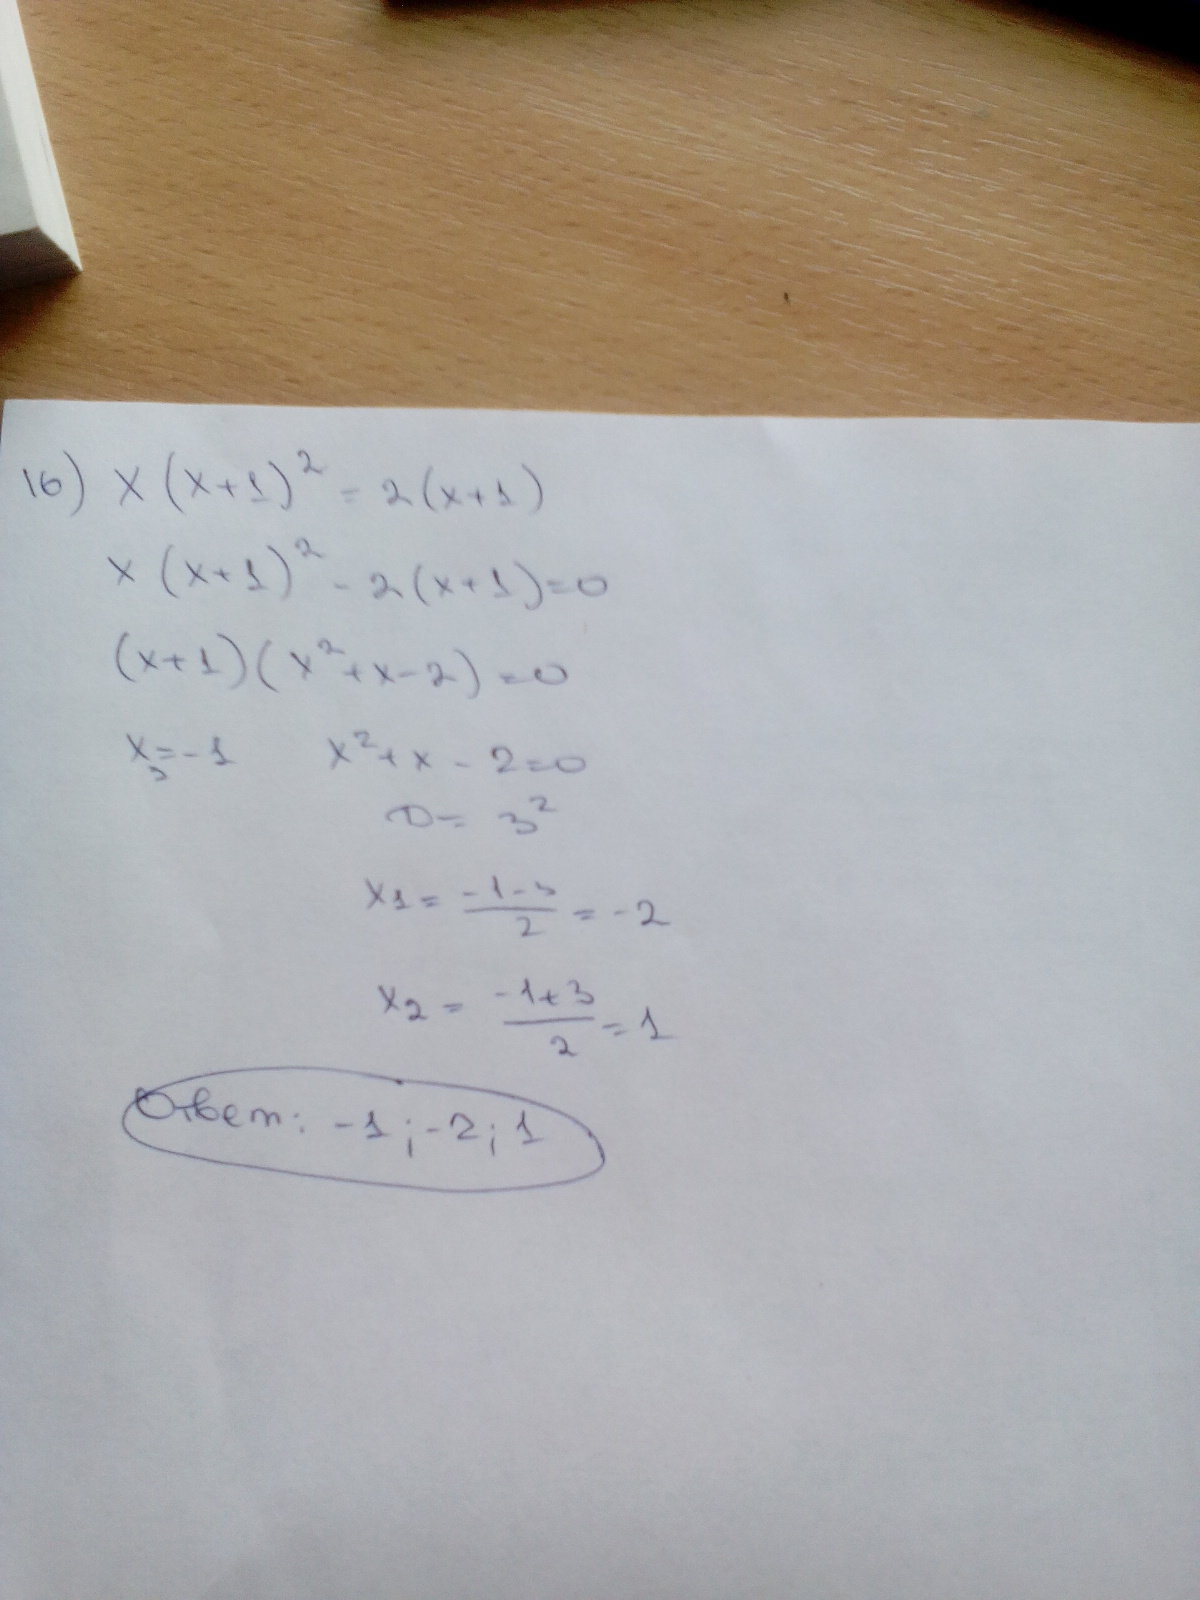 16) x(x+1)² = 2(x+1)
x(x+1)² - 2(x+1)=0
(x+1)(x²+x-2)=0
x₃=-1 x²+x-2=0
D= 3²
x₁= (-1-3)/2 = -2
x₂ = (-1+3)/2 = 1
Ответ: -1; -2; 1